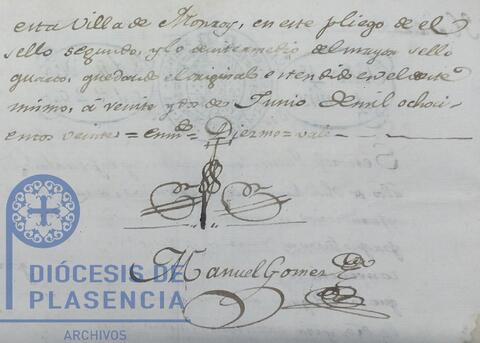 esta Villa de Monroy, en este pliego de el
sello segundo, y lo de intermedio del mayor sello
quarto, quedando el original estendido en el de este
mismo, á veinte y dos de Junio de mil ochoci-
entos veinte = enm.do = Diezmo = vale
Manuel Gomez
DIÓCESIS DE
PLASENCIA
ARCHIVOS